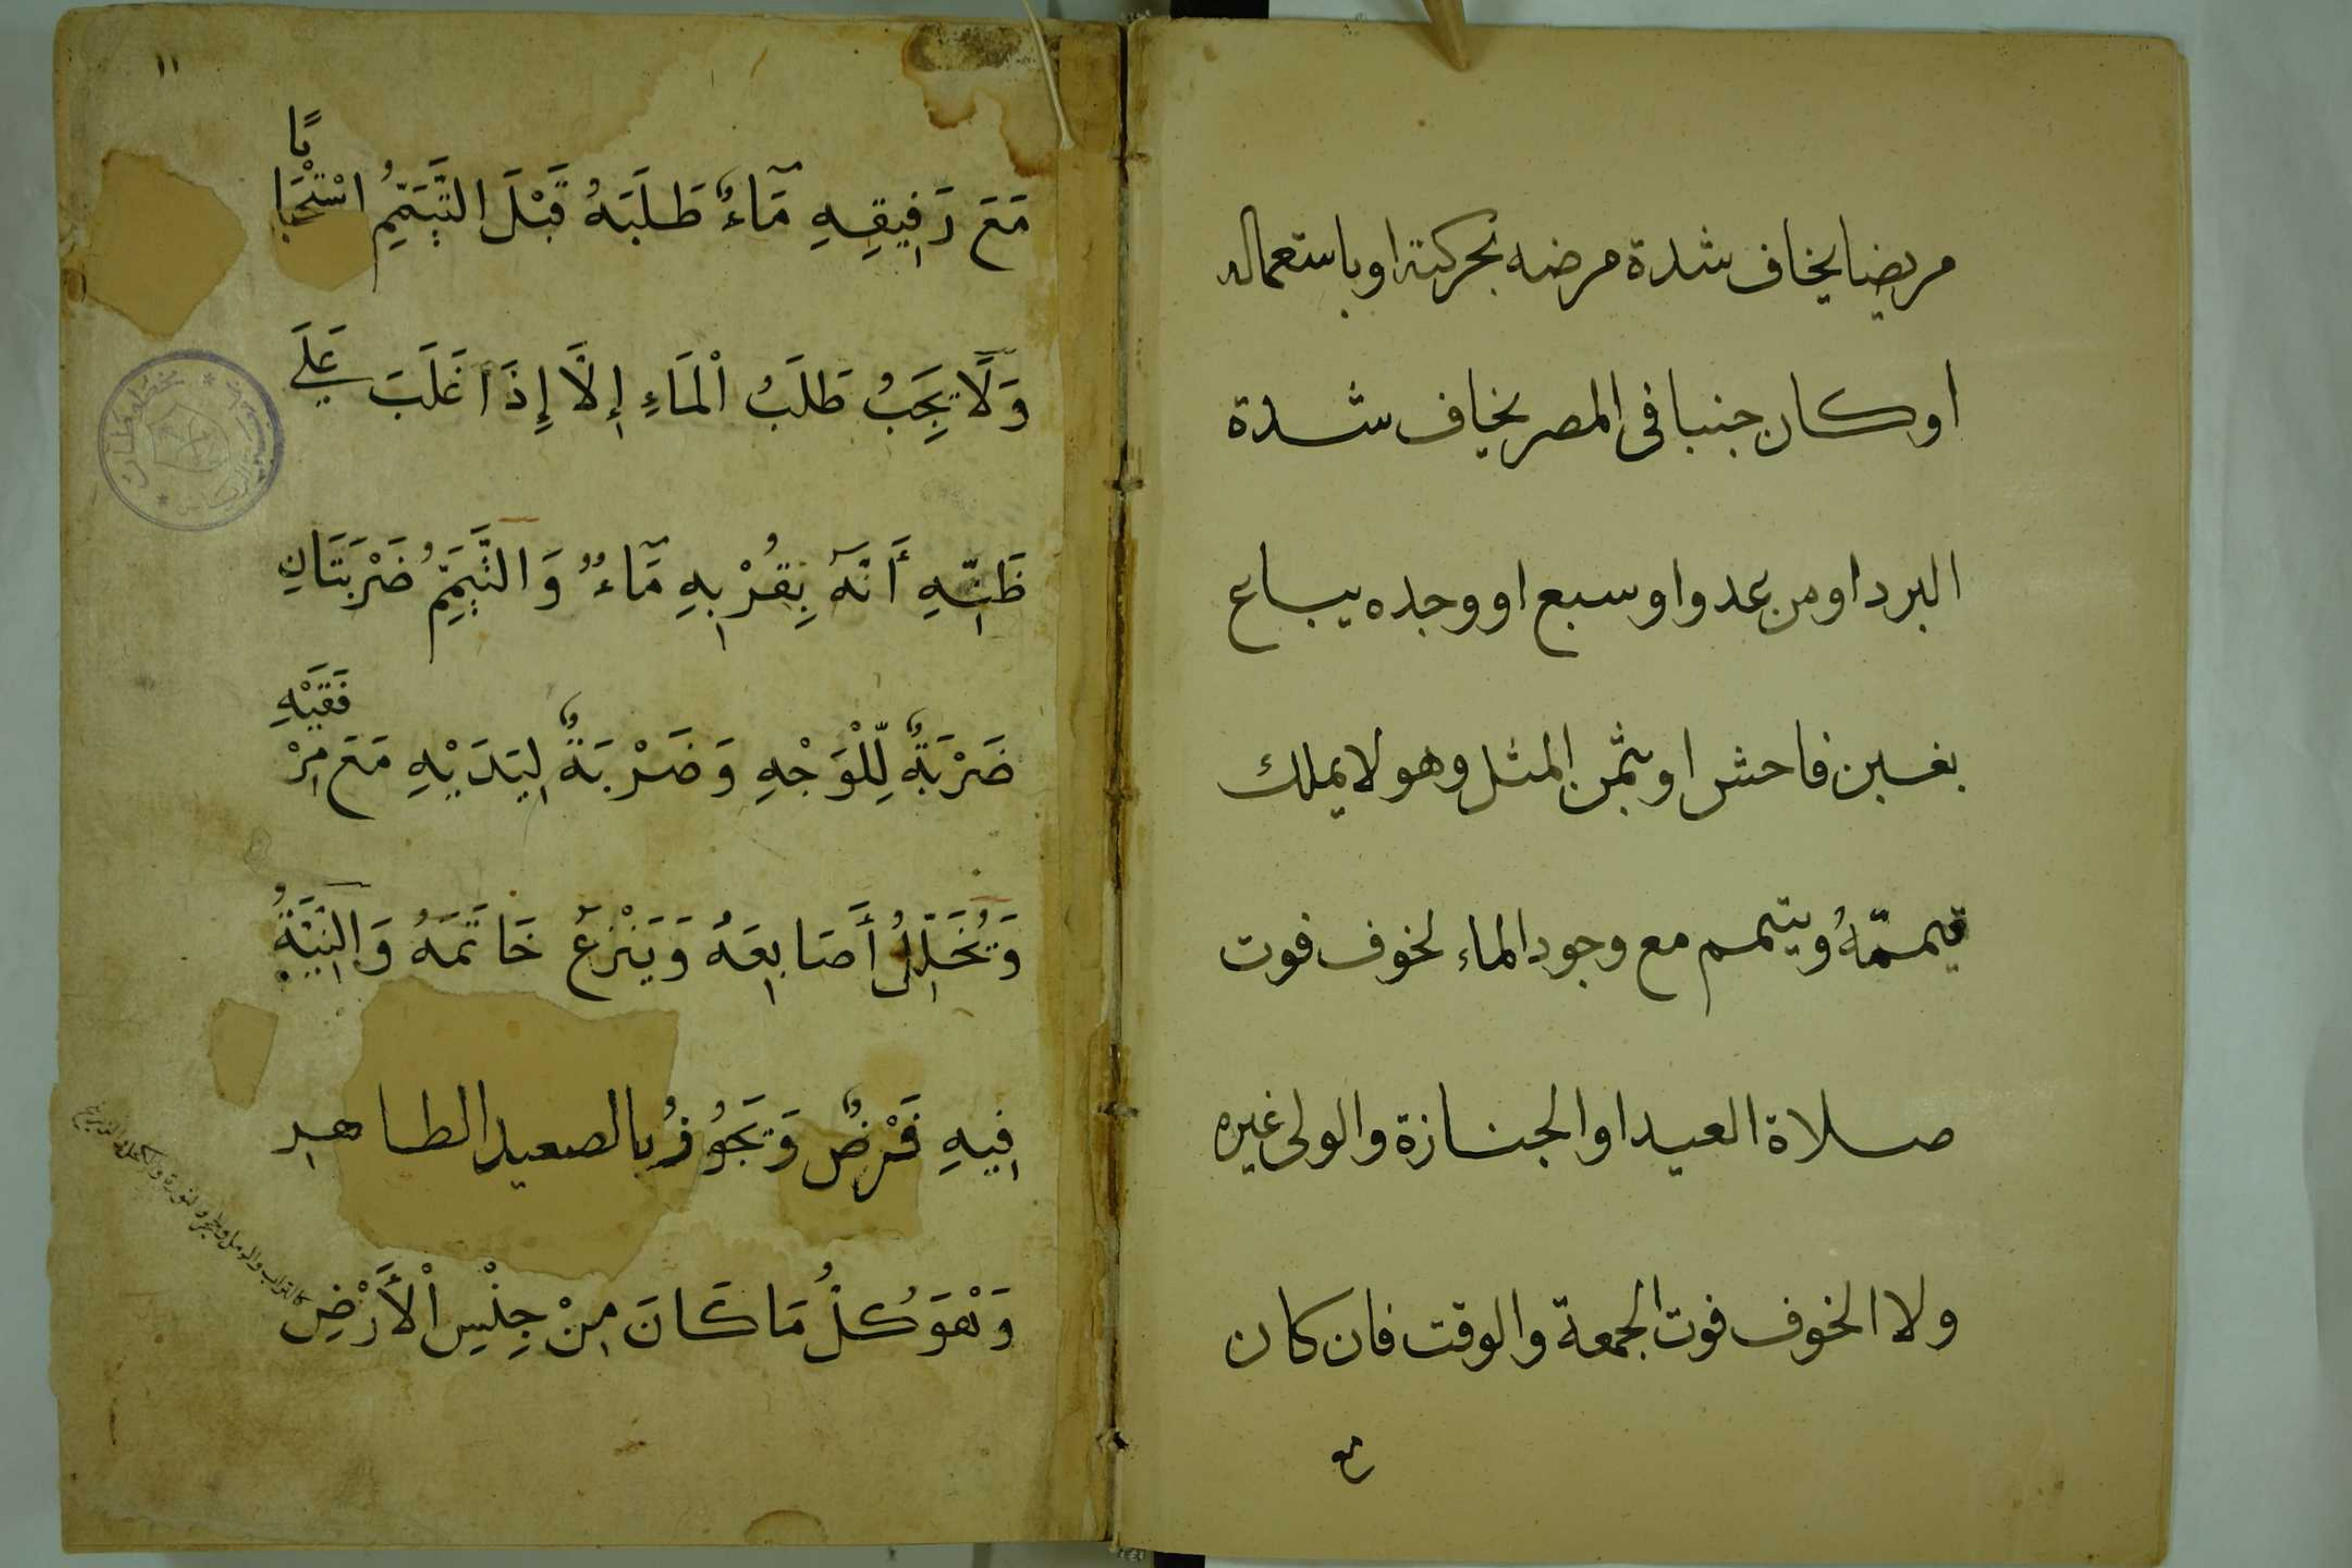 مريضا يخاف شدة مرضه بحركته او باستعماله
او كان جنبا في المصر يخاف شدة
البرد او من عدو او سبع او وجده يباع
بغبن فاحش او بثمن المثل وهو لا يملك
قيمتهُ ويتيمم مع وجود الماء لخوف فوت
صلاة العيد او الجنازة والولى غيره
ولا الخوف فوت الجمعة والوقت فان كان
مع
١١
مَعَ رَفِيقِهِ مَآءٌ طَلَبَهُ قَبْلَ التَّيَمُّمِ اسْتِحْبَا
بًا
وَلَا يَجِبُ طَلَبُ الْمَاءِ إِلَّا إِذَا غَلَبَ عَلَى
ظَنِّهِ أَنَّهُ بِقُرْبِهِ مَآءٌ وَالتَّيَمُّمُ ضَرْبَتَانِ
ضَرْبَةٌ لِّلْوَجْهِ وَضَرْبَةٌ لِيَدَيْهِ مَعَ مِرْ
فَقَيْهِ
وَيُخَلِّلُ أَصَابِعَهُ وَيَنْزَعُ خَاتَمَهُ وَالنِّيَّةُ
فِيهِ فَرْضٌ وَيَجُوزُ بالصعيد الطاهِر
وَهْوَ كُلُّ مَا كَانَ مِنْ جِنْسِ الْأَرْضِ
كالتراب والرمل والحجر والنورة والكحل والزرنيخ